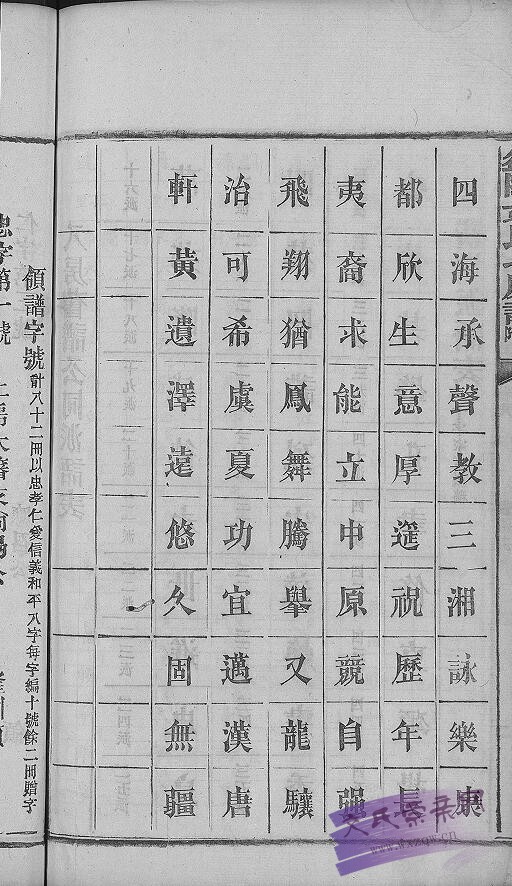 四海承聲教三湘詠樂康
都欣生意厚遥祝歷年長
夷裔求能立中原競自强
飛翔猶鳳舞騰舉又龍驤
治可希虞夏功宜邁漢唐
軒黃遺澤遠悠久固無疆
領譜字號 計八十二冊以忠孝仁愛信義和平八字每字編十號餘二冊贈字
忠字第一號
www.wxzqw.cn